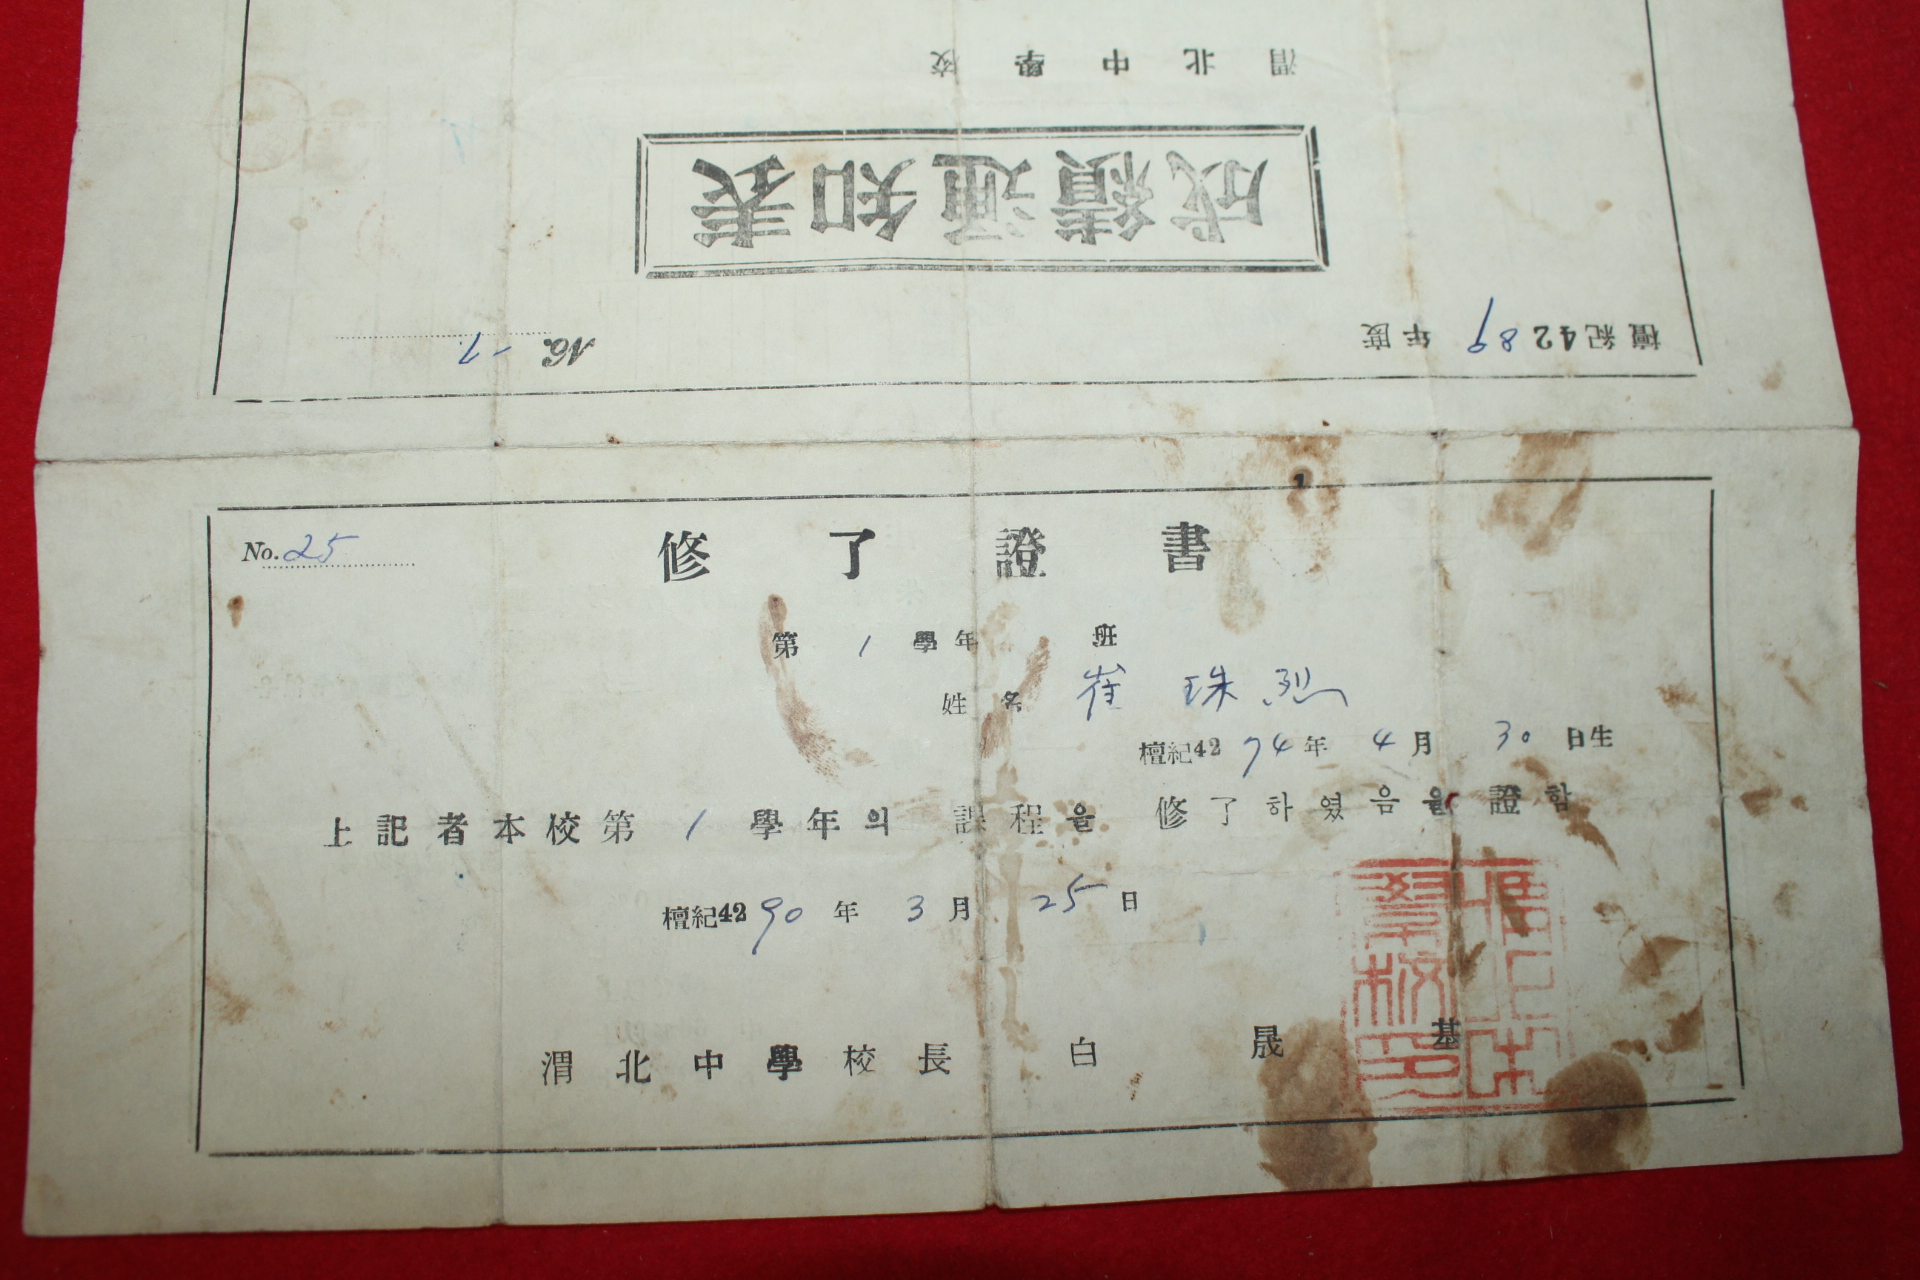 渭北中學校
成績通知表
檀紀4289年度
No. 1-7
No. 25
修了證書
第 1 學年 班
姓名 崔珠烈
檀紀4274年 4月 30日生
上記者本校第 1 學年의 課程을 修了하였음을 證함
檀紀4290年 3月 25日
渭北中學校長 白晟基